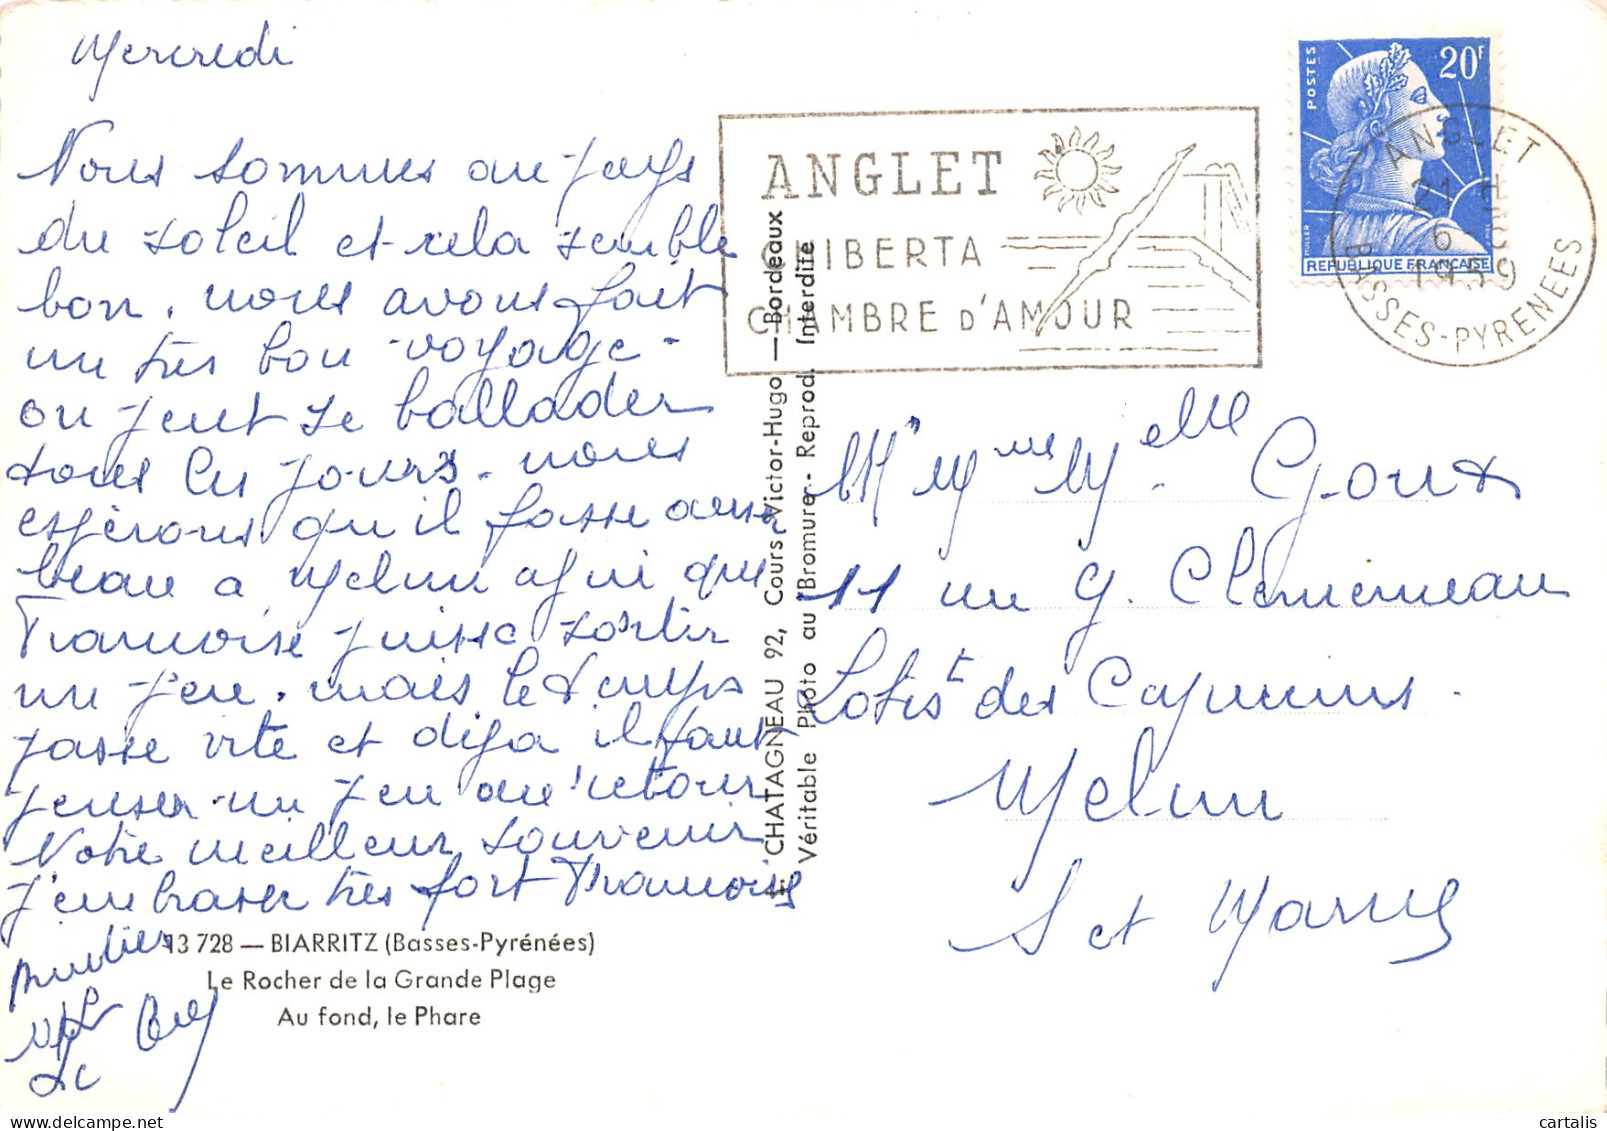 Mercredi
Nous sommes au pays
du soleil et cela semble
bon. nous avons fait
un très bon voyage -
on peut se ballader
tous les jours. nous
espérons qu'il fasse aussi
beau a Melun afin que
Francoise puisse sortir
un peu. mais le temps
passe vite et déja il faut
penser un peu au retour
Notre meilleur souvenir
J'embrasse très fort Francoise
13 728 — BIARRITZ (Basses-Pyrénées)
Le Rocher de la Grande Plage
Au fond, le Phare
CHATAGNEAU 92, Cours Victor-Hugo — Bordeaux
Véritable Photo au Bromure - Reprod. Interdite
ANGLET
CHIBERTA
CHAMBRE D'AMOUR
POSTES
20F
MULLER
REPUBLIQUE FRANÇAISE
ANGLET
21 H
6
1959
BASSES-PYRENEES
Mr Mme Melle Goux
11 rue G. Clemenceau
Lotist des Capucins.
Melun
S et Marne
cartalis